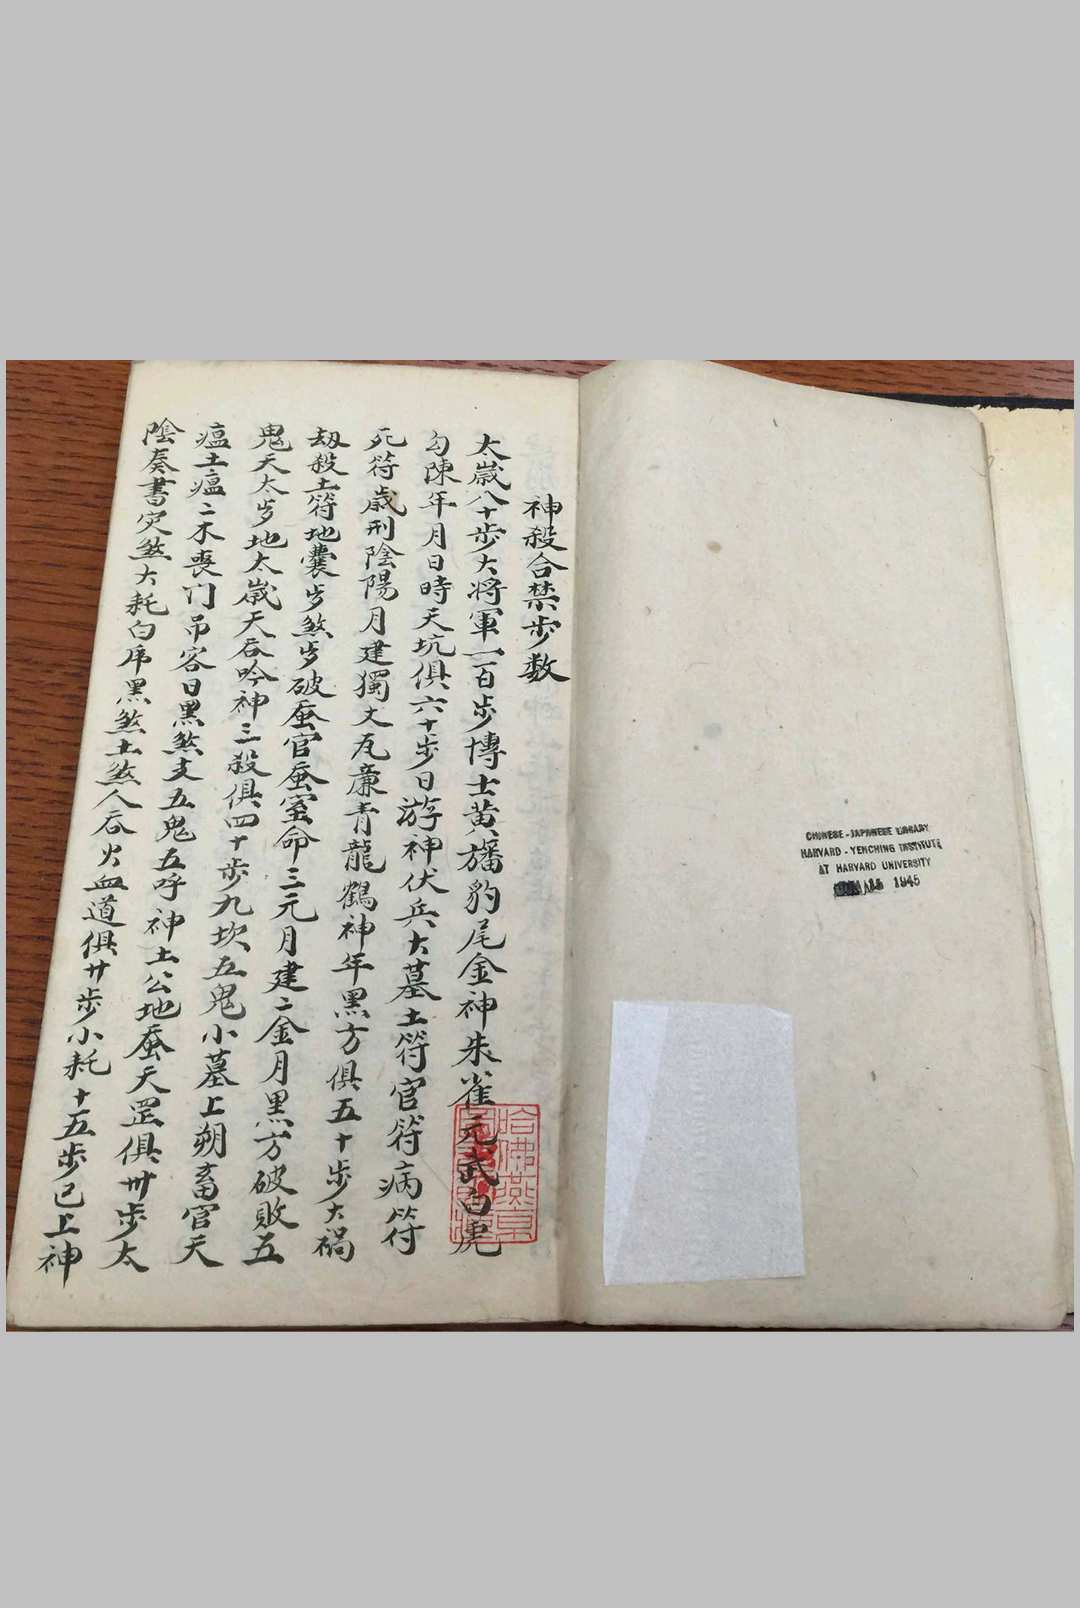 神殺合禁步数
太歲八十步大将軍一百步博士黄旛豹尾金神朱雀元武白虎
勾陳年月日時天坑俱六十步日游神伏兵大墓土符官符病符
死符歲刑陰陽月建獨丈瓦廉青龍鶴神年黑方俱五十步大禍
刼殺土符地囊步煞步破蚕官蚕室命三元月建二金月黒方破敗五
鬼天太岁地太歲天吞吟神三殺俱四十步九坎五鬼小墓上朔畜官天
瘟土瘟二木喪门吊客日黒煞支五鬼五呼神土公地蚕天罡俱卅步太
陰奏書灾煞大耗白虎黑煞土煞人吞火血道俱廿步小耗十五步已上神
哈佛燕京
CHINESE-JAPANESE LIBRARY
HARVARD-YENCHING INSTITUTE
AT HARVARD UNIVERSITY
15 1945